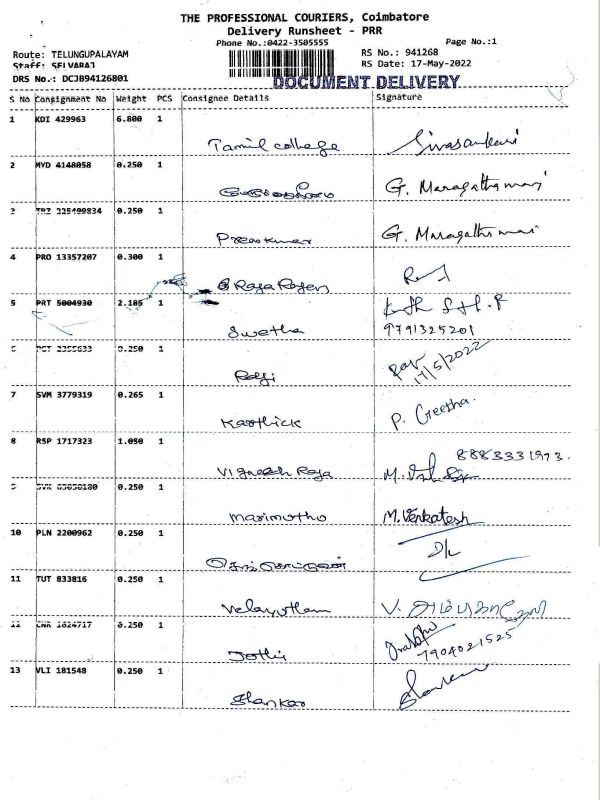 THE PROFESSIONAL COURIERS, Coimbatore
Delivery Runsheet - PRR
Phone No.:0422-3505555
Page No.:1
Route: TELUNGUPALAYAM
RS No.: 941268
Staff: SELVARAJ
RS Date: 17-May-2022
DRS No.: DCJB94126801
DOCUMENT DELIVERY
S No Consignment No Weight PCS Consignee Details Signature
1 KDI 429963 6.800 1
Tamil college Sivasankari
2 MYD 4148058 0.250 1
G. Maragathamani
3 TRZ 0.250 1
Premkumar G. Maragathamani
4 PRO 13357207 0.300 1
Raja Rajan
5 PRT 5004930 2.185 1
Swetha 9791325201
0.250 1
Raji 17/5/2022
7 SVM 3779319 0.265 1
Karthick P. Geetha.
8 RSP 1717323 1.050 1
8883331973.
Vignesh Raja M.
0.250 1
Marimuthu M. Venkatesh
10 PLN 2200962 0.250 1
D/L
11 TUT 833816 0.250 1
Velayutham V.
12 CNR 1624717 0.250 1
Jothi 7904021525
13 VLI 181548 0.250 1
Shankar Shankar